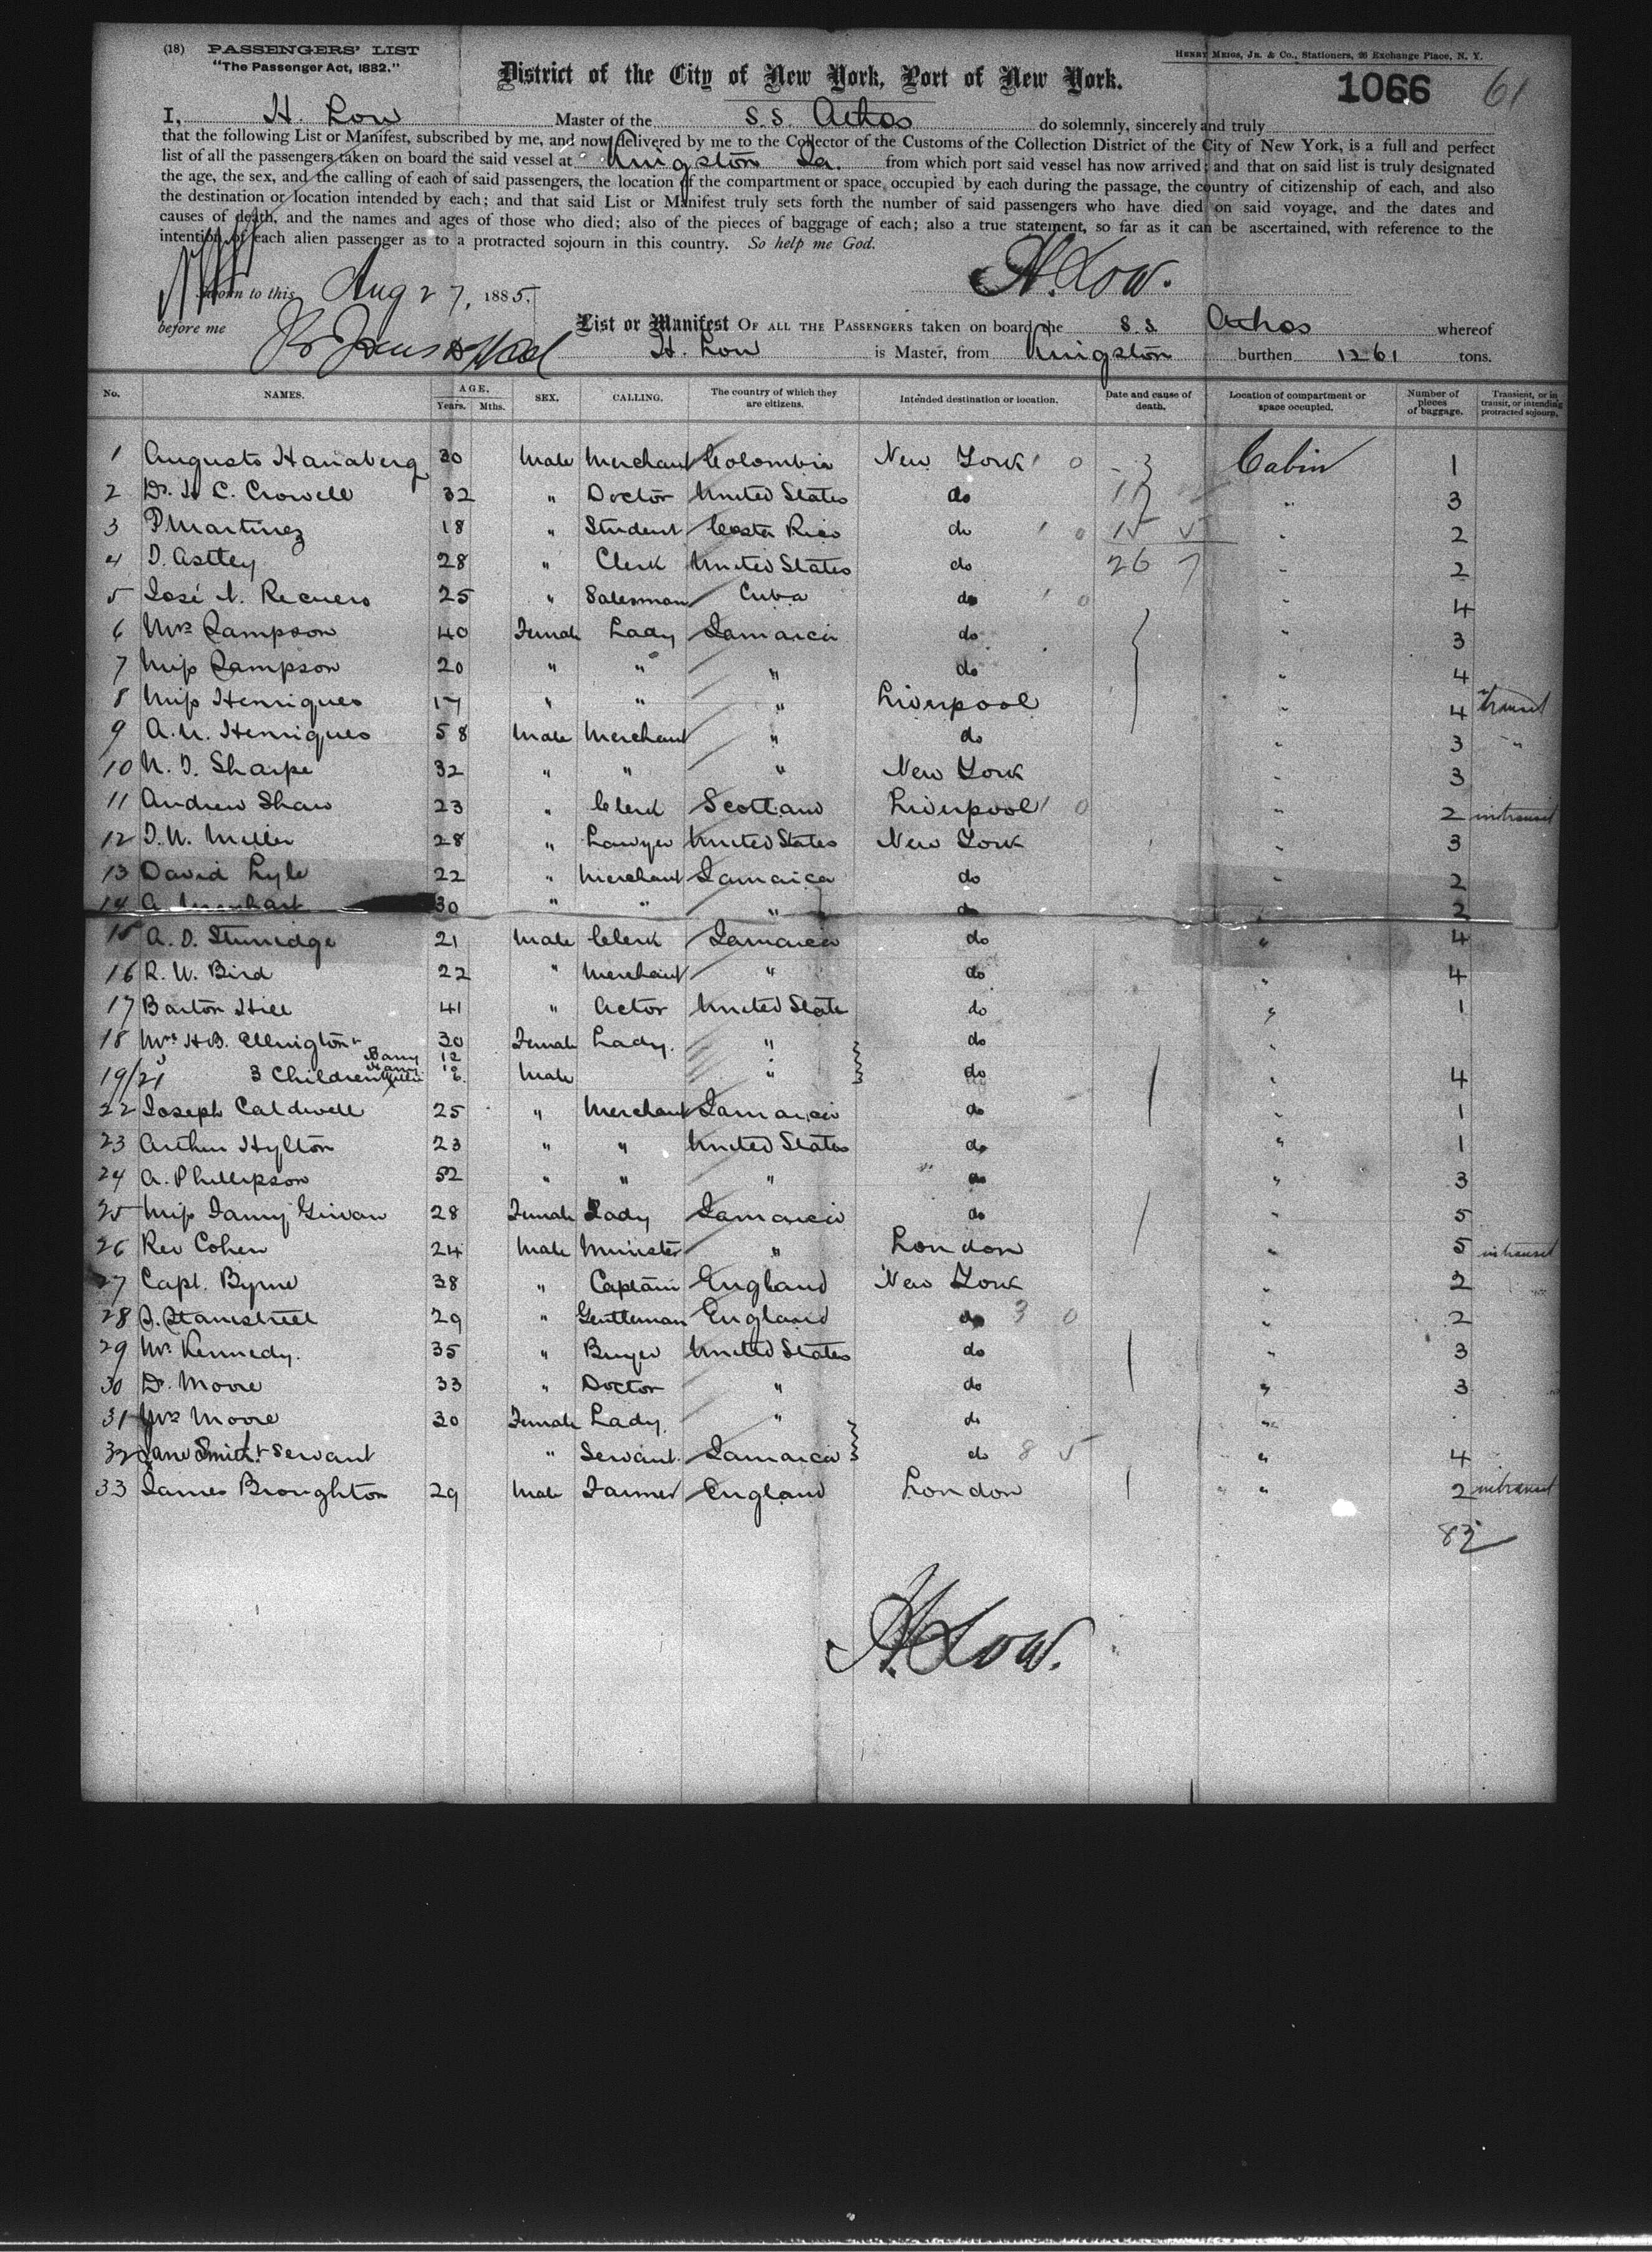 (18) PASSENGERS' LIST
"The Passenger Act, 1882."
HENRY MEIGS, JR. & CO., Stationers, 26 Exchange Place, N. Y.
District of the City of New York, Port of New York.
1066 61
I, H. Low Master of the S.S. Athos do solemnly, sincerely and truly
that the following List or Manifest, subscribed by me, and now delivered by me to the Collector of the Customs of the Collection District of the City of New York, is a full and perfect
list of all the passengers taken on board the said vessel at Kingston Ja. from which port said vessel has now arrived; and that on said list is truly designated
the age, the sex, and the calling of each of said passengers, the location of the compartment or space occupied by each during the passage, the country of citizenship of each, and also
the destination or location intended by each; and that said List or Manifest truly sets forth the number of said passengers who have died on said voyage, and the dates and
causes of death, and the names and ages of those who died; also of the pieces of baggage of each; also a true statement, so far as it can be ascertained, with reference to the
intention of each alien passenger as to a protracted sojourn in this country. So help me God.
Sworn to this Aug 27, 1885. H. Low.
before me
List or Manifest OF ALL THE PASSENGERS taken on board the S.S. Athos whereof
H. Low is Master, from Kingston burthen 1261 tons.
No. NAMES. AGE. Years. Mths. SEX. CALLING. The country of which they are citizens. Intended destination or location. Date and cause of death. Location of compartment or space occupied. Number of pieces of baggage. Transient, or in transit, or intending protracted sojourn.
1 Augusto Hanaberg 30 Male Merchant Colombia New York Cabin 1
2 Dr. H. C. Crowell 32 " Doctor United States do " 3
3 P Martinez 18 " Student Costa Rica do 15 5 " 2
4 D. Astley 28 " Clerk United States do 26 7 " 2
5 José N. Recuero 25 " Salesman Cuba do " 4
6 Mrs Sampson 40 Female Lady Jamaica do " 3
7 Miss Sampson 20 " " " do " 4
8 Miss Henriques 17 " " " Liverpool " 4 transit
9 A. N. Henriques 58 Male Merchant " do " 3 "
10 N. D. Sharpe 32 " " " New York " 3
11 Andrew Shaw 23 " Clerk Scotland Liverpool " 2 in transit
12 D. W. Miller 28 " Lawyer United States New York " 3
13 David Lyle 22 " Merchant Jamaica do " 2
14 A. 30 " " " do " 2
15 A. D. Sturridge 21 Male Clerk Jamaica do " 4
16 R. W. Bird 22 " Merchant " do " 4
17 Barton Hill 41 " Actor United State do " 1
18 Mrs H.B. Ellington & 30 Female Lady. " do
19/21 3 Children Male " do " 4
22 Joseph Caldwell 25 " Merchant Jamaica do " 1
23 Arthur Hylton 23 " " United States do " 1
24 A. Phillipson 52 " " " do " 3
25 Miss Fanny Girvan 28 Female Lady Jamaica do " 5
26 Rev Cohen 24 Male Minister " London " 5 in transit
27 Capt. Byrne 38 " Captain England New York " 2
28 Stanistreet 29 " Gentleman England do 3 0 " 2
29 Mr. Kennedy. 35 " Buyer United States do " 3
30 Dr. Moore 33 " Doctor " do " 3
31 Mrs Moore 30 Female Lady " do "
32 Jane Smith & Servant " Servant. Jamaica do 8 5 " 4
33 James Broughton 29 Male Farmer England London " 2 in transit
83
H. Low.